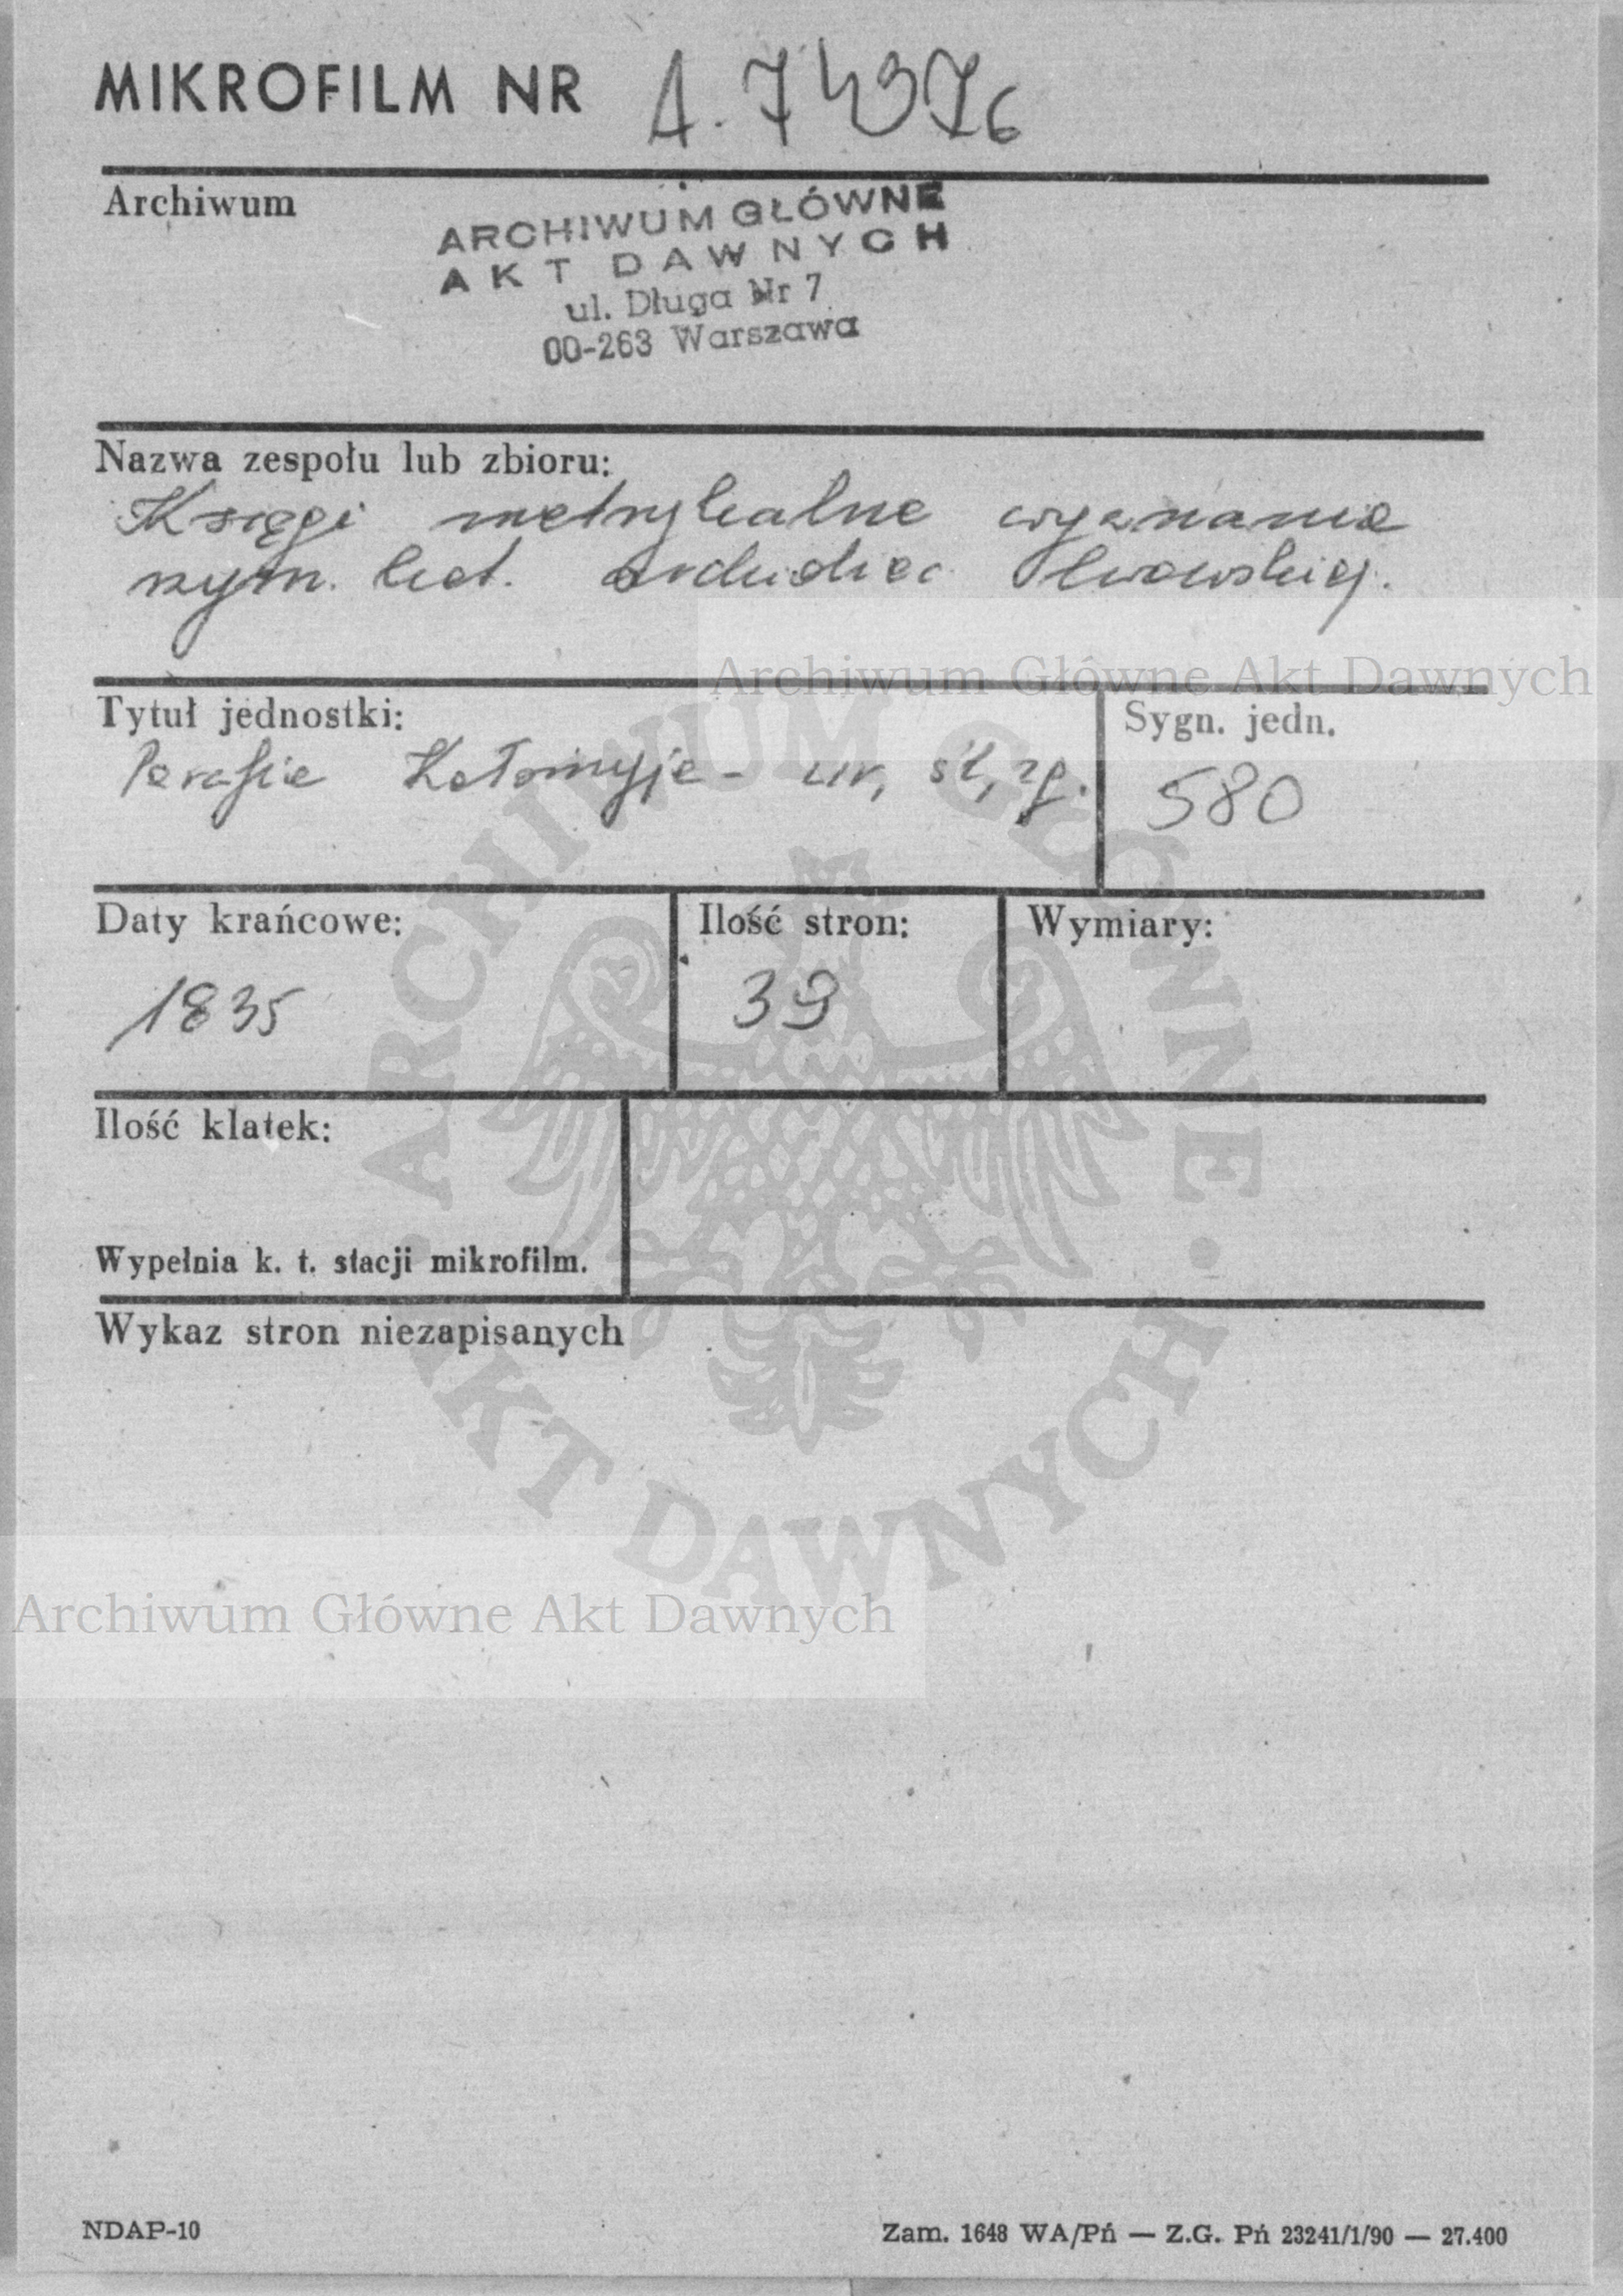 MIKROFILM NR A. 74376
Archiwum
ARCHIWUM GŁÓWNE
AKT DAWNYCH
ul. Długa Nr 7
00-263 Warszawa
Nazwa zespołu lub zbioru:
Księgi metrykalne wyznania
rzym. kat. archidiec. lwowskiej.
Archiwum Główne Akt Dawnych
Tytuł jednostki:
Parafia Kołomyja - ur, śl, zg.
Sygn. jedn.
580
Daty krańcowe:
1835
Ilość stron:
39
Wymiary:
Ilość klatek:
Wypełnia k. t. stacji mikrofilm.
Wykaz stron niezapisanych
ARCHIWUM GŁÓWNE · AKT DAWNYCH ·
Archiwum Główne Akt Dawnych
NDAP-10
Zam. 1648 WA/Pń — Z.G. Pń 23241/1/90 — 27.400